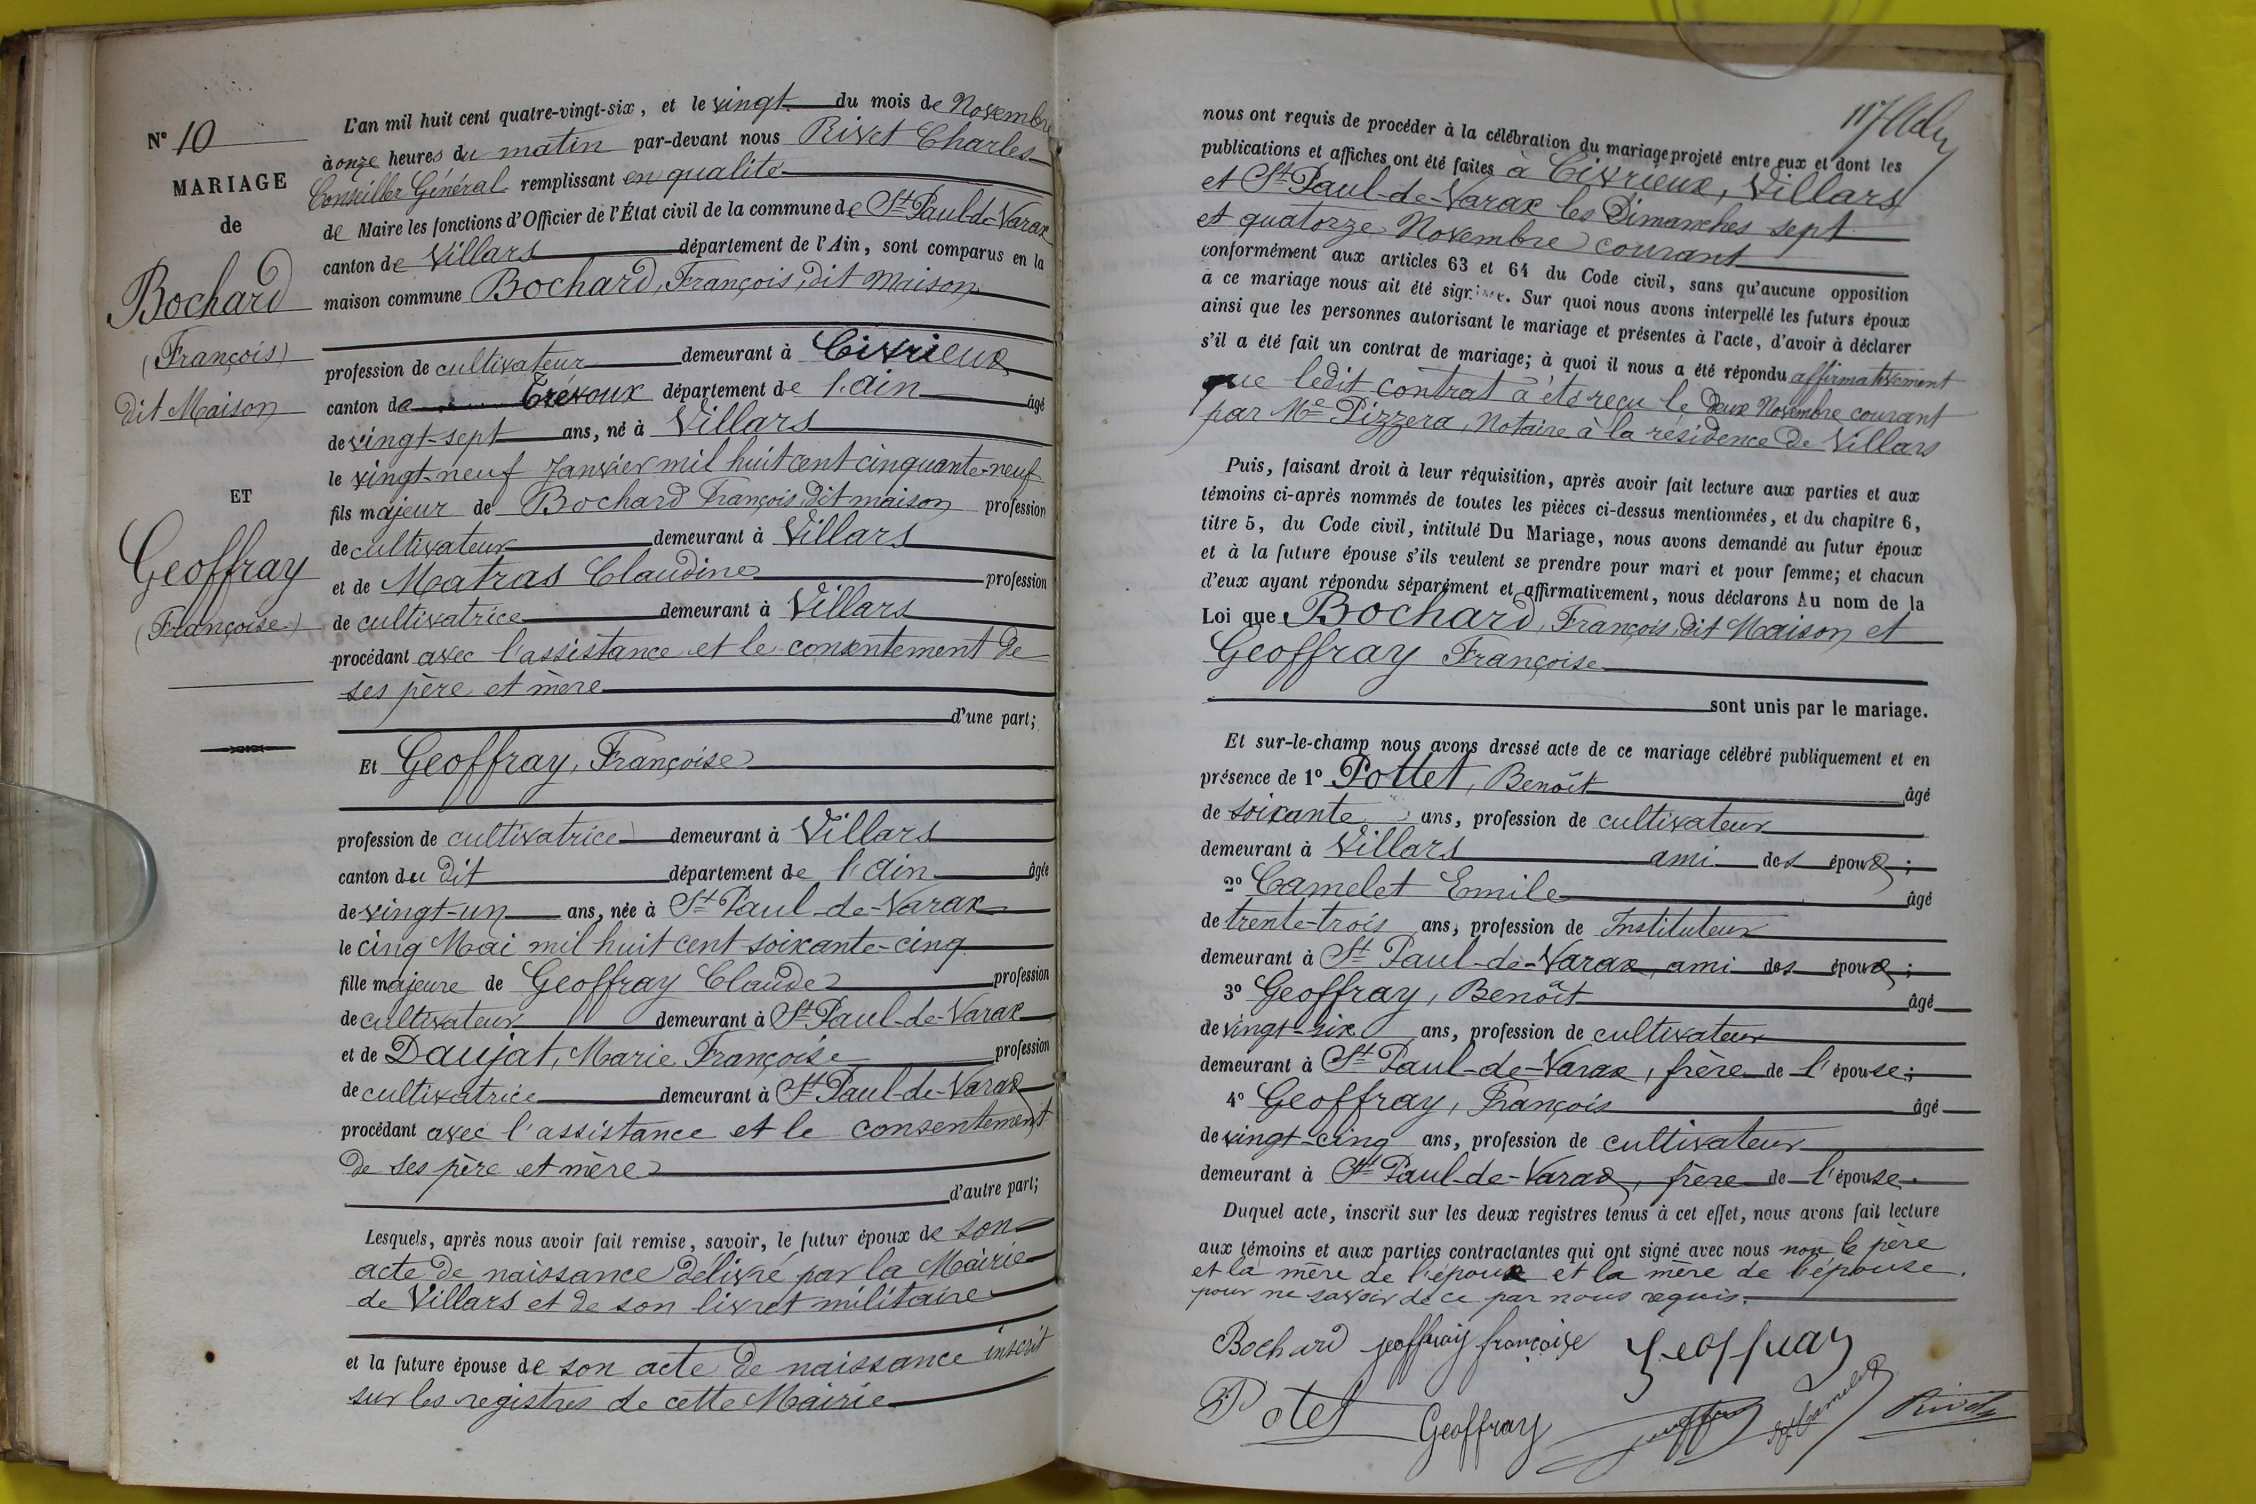 N° 10
MARIAGE
de
Bochard
(François)
dit Maison
ET
Geoffray
(Françoise)
L'an mil huit cent quatre-vingt-six, et le vingt du mois de Novembre
à onze heures du matin par-devant nous Rivet Charles
Conseiller Général remplissant en qualité
de Maire les fonctions d'Officier de l'État civil de la commune de St Paul-de-Varax
canton de Villars département de l'Ain, sont comparus en la
maison commune Bochard, François, dit Maison
profession de cultivateur demeurant à Civrieux
canton de Trévoux département de l'Ain âgé
de vingt-sept ans, né à Villars
le vingt-neuf Janvier mil huit cent cinquante-neuf
fils majeur de Bochard François, dit maison profession
de cultivateur demeurant à Villars
et de Matras Claudine profession
de cultivatrice demeurant à Villars
procédant avec l'assistance et le consentement de
ses père et mère
d'une part;
Et Geoffray, Françoise
profession de cultivatrice demeurant à Villars
canton du dit département de l'Ain âgée
de vingt-un ans, née à St Paul-de-Varax
le cinq Mai mil huit cent soixante-cinq
fille majeure de Geoffray Claude profession
de cultivateur demeurant à St Paul-de-Varax
et de Daujat, Marie Françoise profession
de cultivatrice demeurant à St Paul-de-Varax
procédant avec l'assistance et le consentement
de ses père et mère
d'autre part;
Lesquels, après nous avoir fait remise, savoir, le futur époux de son
acte de naissance délivré par la Mairie
de Villars et de son livret militaire
et la future épouse de son acte de naissance inscrit
sur les registres de cette Mairie
nous ont requis de procéder à la célébration du mariage projeté entre eux et dont les
publications et affiches ont été faites à Civrieux, Villars
et St Paul-de-Varax les Dimanches sept
et quatorze Novembre courant
conformément aux articles 63 et 64 du Code civil, sans qu'aucune opposition
à ce mariage nous ait été signifiée. Sur quoi nous avons interpellé les futurs époux
ainsi que les personnes autorisant le mariage et présentes à l'acte, d'avoir à déclarer
s'il a été fait un contrat de mariage; à quoi il nous a été répondu affirmativement
que ledit contrat a été reçu le deux Novembre courant
par Me Pizzera, Notaire à la résidence de Villars
Puis, faisant droit à leur réquisition, après avoir fait lecture aux parties et aux
témoins ci-après nommés de toutes les pièces ci-dessus mentionnées, et du chapitre 6,
titre 5, du Code civil, intitulé Du Mariage, nous avons demandé au futur époux
et à la future épouse s'ils veulent se prendre pour mari et pour femme; et chacun
d'eux ayant répondu séparément et affirmativement, nous déclarons Au nom de la
Loi que Bochard, François, dit Maison et
Geoffray Françoise
sont unis par le mariage.
Et sur-le-champ nous avons dressé acte de ce mariage célébré publiquement et en
présence de 1° Pottet, Benoît âgé
de soixante ans, profession de cultivateur
demeurant à Villars ami des époux;
2° Camelet Emile âgé
de trente-trois ans, profession de Instituteur
demeurant à St Paul-de-Varax, ami des époux;
3° Geoffray, Benoît âgé
de vingt-six ans, profession de cultivateur
demeurant à St Paul-de-Varax, frère de l'épouse;
4° Geoffray, François âgé
de vingt-cinq ans, profession de cultivateur
demeurant à St Paul-de-Varax, frère de l'épouse.
Duquel acte, inscrit sur les deux registres tenus à cet effet, nous avons fait lecture
aux témoins et aux parties contractantes qui ont signé avec nous non le père
et la mère de l'époux et la mère de l'épouse.
pour ne savoir de ce par nous requis.
Bochard geoffray françoise Geoffray
Potet Geoffray Geoffray Camelet Rivet